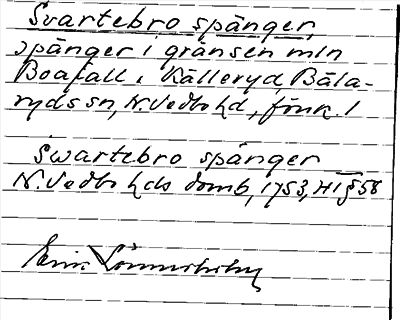 Svartebro spänger,
spänger i gränsen mln
Boafall o. Källeryd, Båla-
ryds sn, N.Vedbo hd, fönk. 1
Swartebro spänger
N.Vedbo hds domb, 1753, HT § 58
Erik